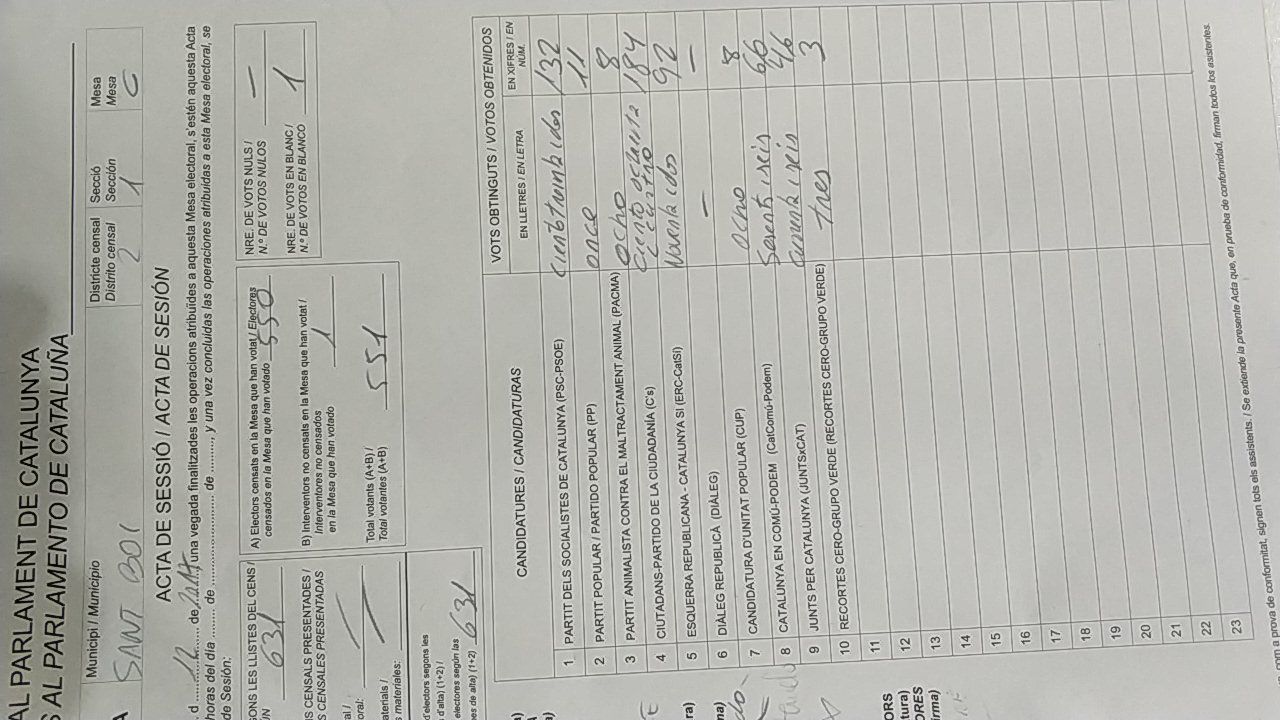 AL PARLAMENT DE CATALUNYA
S AL PARLAMENTO DE CATALUÑA
Municipi / Municipio
SANT BOI
Districte censal
Distrito censal
2
Secció
Sección
1
Mesa
Mesa
C
A
ACTA DE SESSIÓ / ACTA DE SESIÓN
una vegada finalitzades les operacions atribuïdes a aquesta Mesa electoral, s'estén aquesta Acta
horas del día ........ de ........................ de ........, y una vez concluidas las operaciones atribuidas a esta Mesa electoral, se
de Sesión:
GONS LES LLISTES DEL CENS /
631
IS CENSALS PRESENTADES /
S CENSALES PRESENTADAS
d'electors segons les
d'alta) (1+2) /
electores según las
nes de alta) (1+2) 631
A) Electors censats en la Mesa que han votat / Electores
censados en la Mesa que han votado 550
B) Interventors no censats en la Mesa que han votat /
Interventores no censados
en la Mesa que han votado 1
Total votants (A+B) /
Total votantes (A+B) 551
NRE. DE VOTS NULS /
N.º DE VOTOS NULOS —
NRE. DE VOTS EN BLANC /
N.º DE VOTOS EN BLANCO 1
CANDIDATURES / CANDIDATURAS
VOTS OBTINGUTS / VOTOS OBTENIDOS
EN LLETRES / EN LETRA
EN XIFRES / EN NÚM.
1 PARTIT DELS SOCIALISTES DE CATALUNYA (PSC-PSOE) 132
2 PARTIT POPULAR / PARTIDO POPULAR (PP) once 11
3 PARTIT ANIMALISTA CONTRA EL MALTRACTAMENT ANIMAL (PACMA) ocho 8
4 CIUTADANS-PARTIDO DE LA CIUDADANÍA (C's) ciento ochenta y cuatro 184
5 ESQUERRA REPUBLICANA - CATALUNYA SÍ (ERC-CatSí) 92
6 DIÀLEG REPUBLICÀ (DIÀLEG) — —
7 CANDIDATURA D'UNITAT POPULAR (CUP) ocho 8
8 CATALUNYA EN COMÚ-PODEM (CatComú-Podem) 66
9 JUNTS PER CATALUNYA (JUNTSxCAT) 46
10 RECORTES CERO-GRUPO VERDE (RECORTES CERO-GRUPO VERDE) tres 3
11
12
13
14
15
16
17
18
19
20
21
22
23
com a prova de conformitat, signen tots els assistents. / Se extiende la presente Acta que, en prueba de conformidad, firman todos los asistentes.